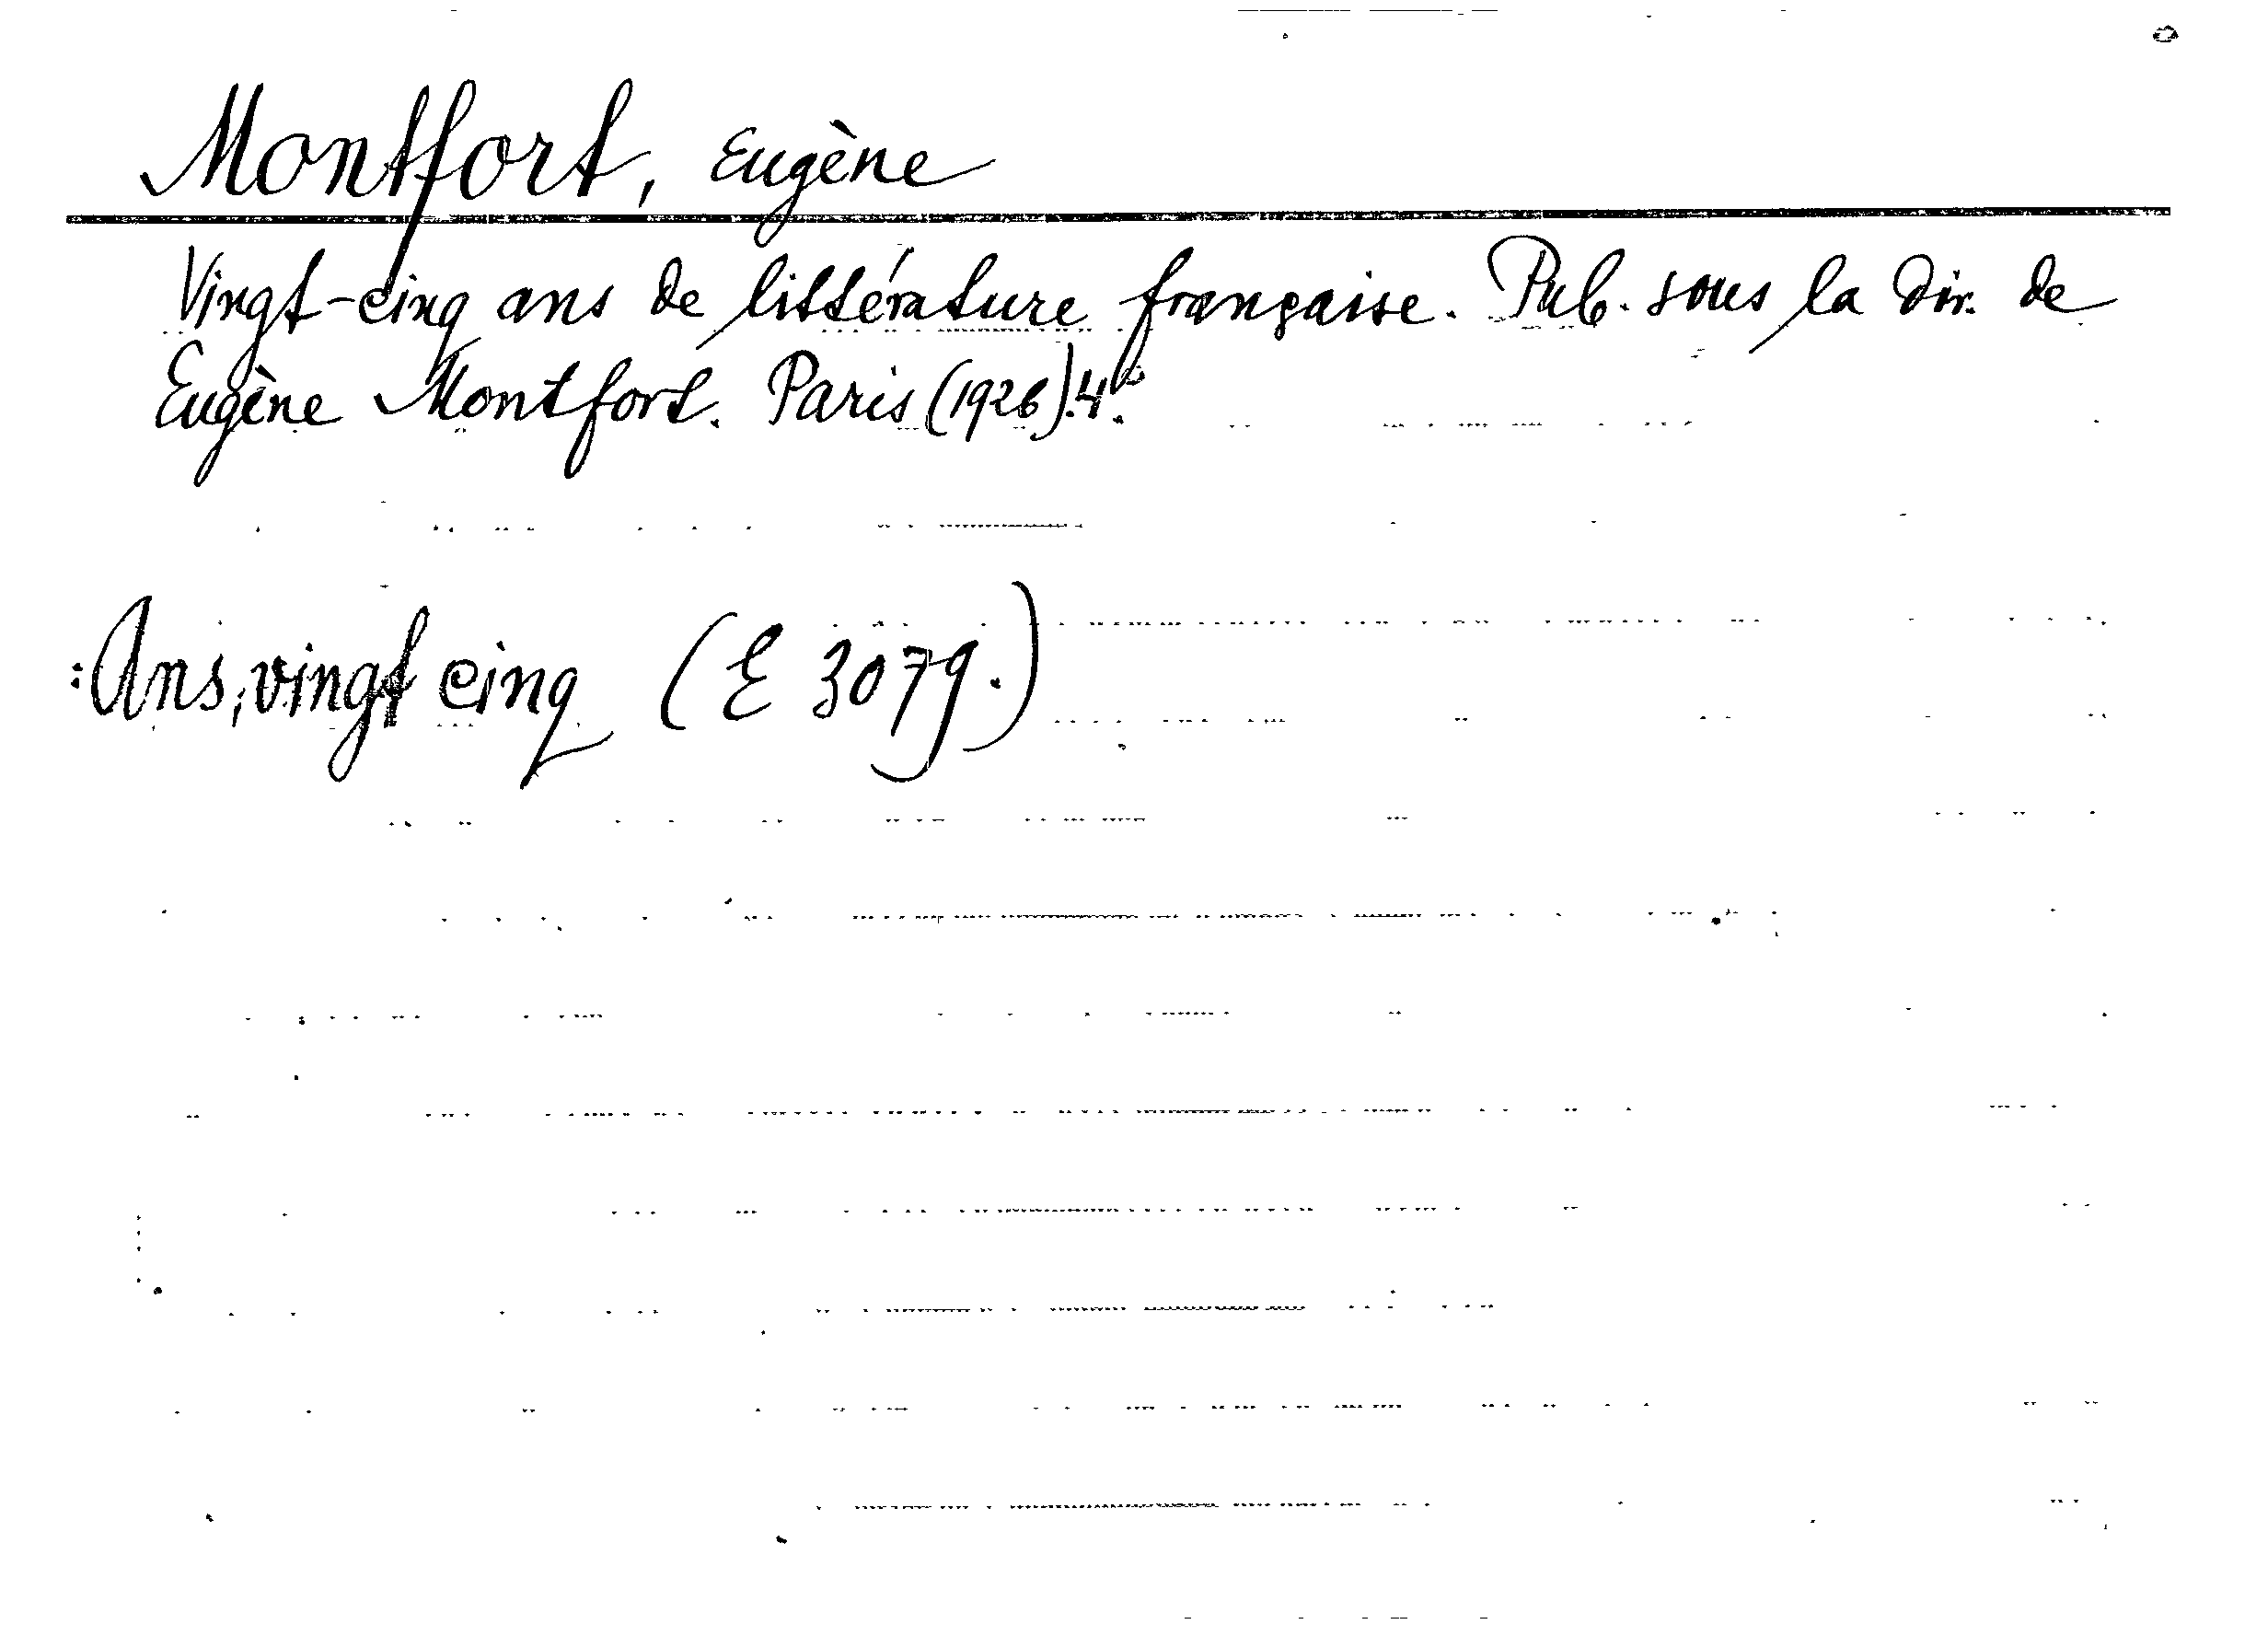 Montfort, Eugène
Vingt-cinq ans de littérature française. Pub. sous la dir. de
Eugène Montfort. Paris (1926). 4°.
:Ans, vingt cinq (E 3079.)